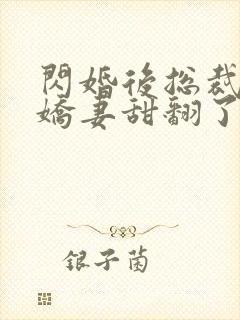 閃婚後总裁
嬌妻甜翻了
银子菌